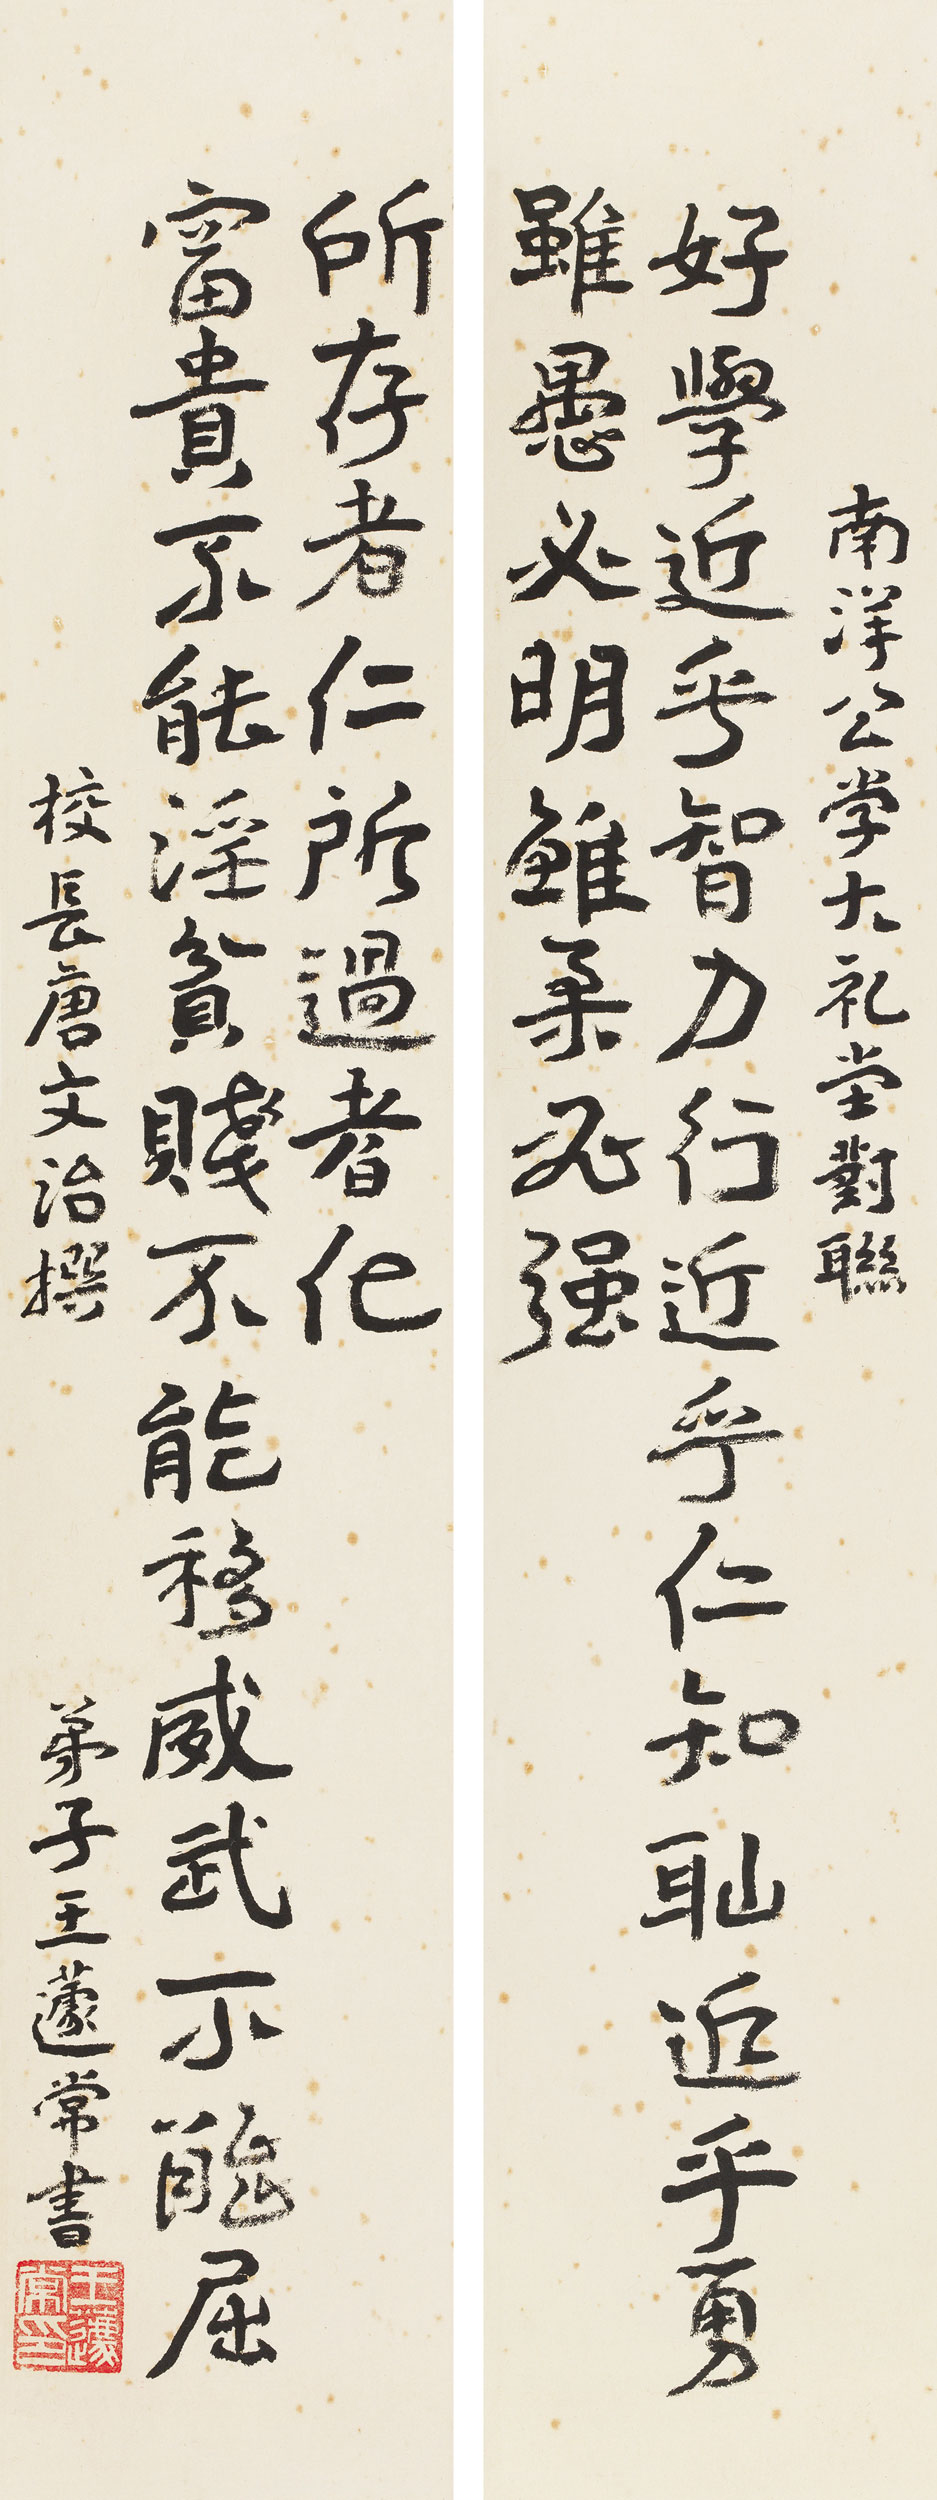 南洋公学大礼堂對聯
好學近乎智力行近乎仁知耻近乎勇
雖愚必明雖柔必强
所存者仁所過者化
富貴不能淫貧賤不能移威武不能屈
校長唐文治撰
弟子王蘧常書
王蘧常印